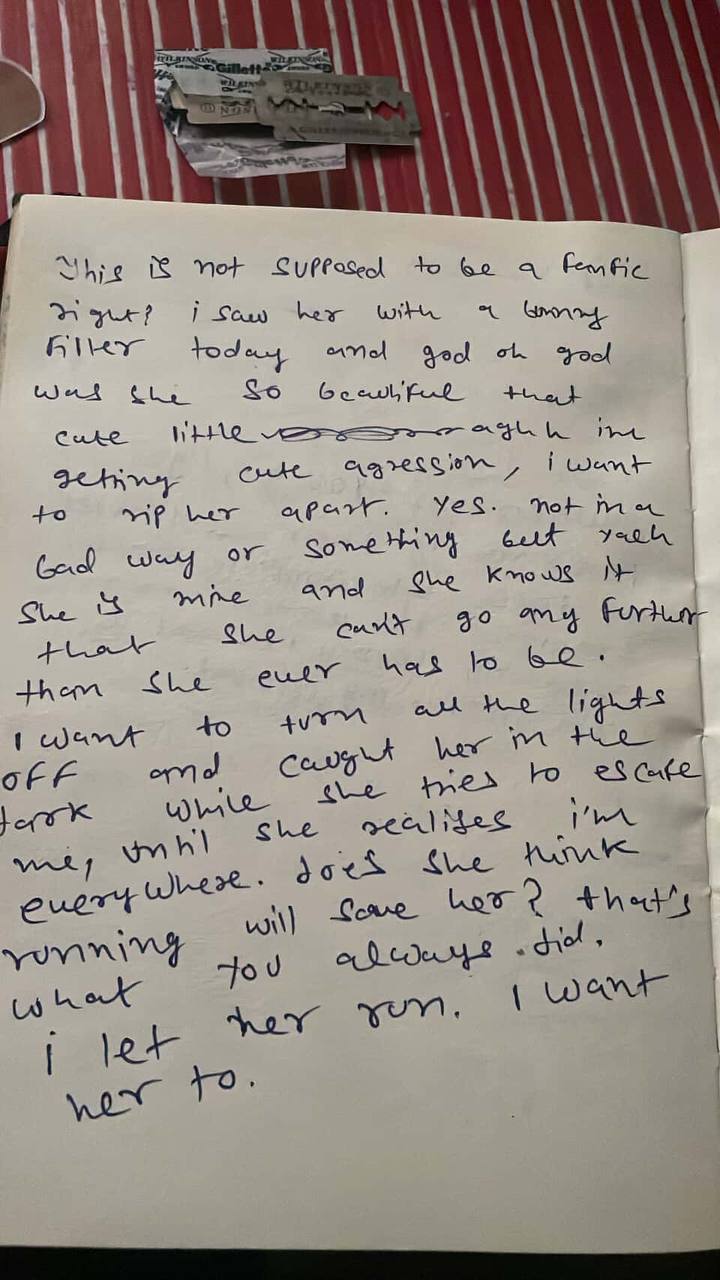 WILKINSON
Gillette
WILKINSON
This is not supposed to be a fanfic
right? i saw her with a bunny
filter today and god oh god
was she so beautiful that
cute little aghh im
getting cute agression, i want
to rip her apart. Yes. not in a
bad way or something but yaeh
She is mine and she knows it
that she can't go any further
than she ever has to be.
I want to turn all the lights
off and caught her in the
dark while she tries to escape
me, until she realises i'm
everywhere. does she think
running will save her? that's
what you always did.
i let her run. I want
her to.